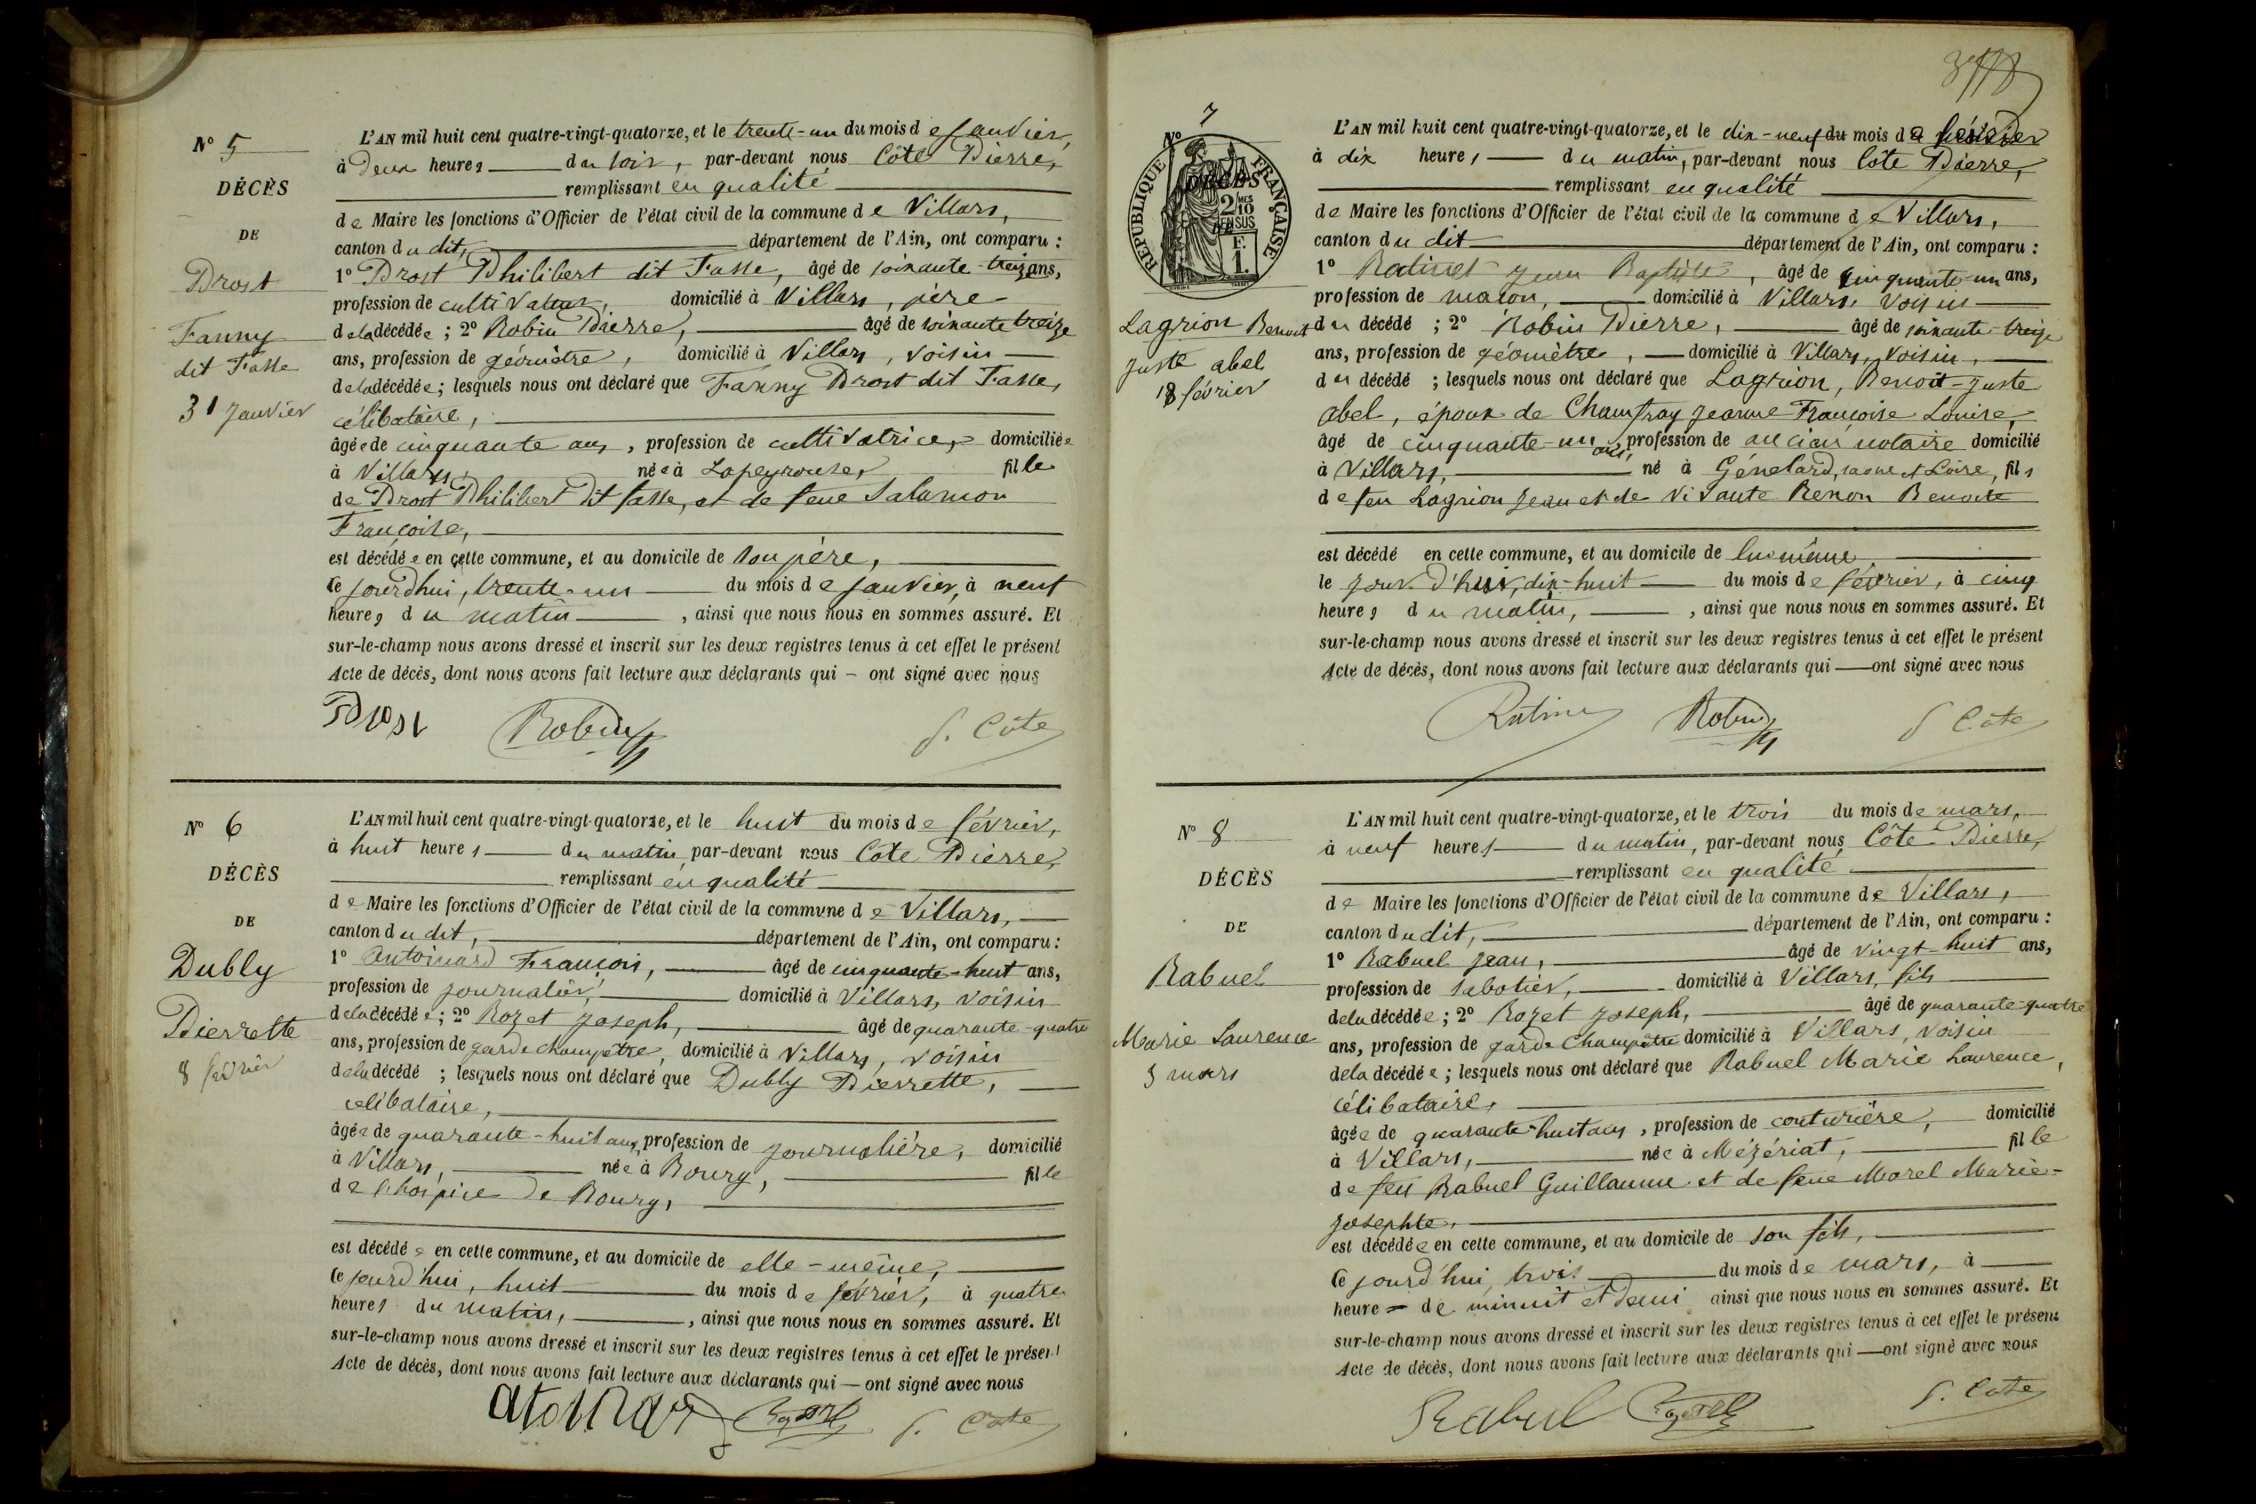 Nº 5
DÉCÈS
DE
Drost
Fanny
dit Fasse
31 janvier
L'AN mil huit cent quatre-vingt-quatorze, et le trente-un du mois de janvier,
à deux heures du soir, par-devant nous Côte Pierre,
remplissant en qualité
de Maire les fonctions d'Officier de l'état civil de la commune de Villars,
canton du dit, département de l'Ain, ont comparu :
1º Drost Philibert dit Fasse, âgé de soixante-treize ans,
profession de cultivateur, domicilié à Villars, père
de la décédée ; 2º Robin Pierre, âgé de soixante treize
ans, profession de géomètre, domicilié à Villars, voisin
de la décédée ; lesquels nous ont déclaré que Fanny Drost dit Fasse,
célibataire,
âgée de cinquante ans, profession de cultivatrice, domiciliée
à Villars, née à Lapeyrouse, fille
de Drost Philibert dit fasse, et de feue Salamon
Françoise,
est décédée en cette commune, et au domicile de son père,
ce jourd'hui, trente-un du mois de janvier, à neuf
heures du matin, ainsi que nous nous en sommes assuré. Et
sur-le-champ nous avons dressé et inscrit sur les deux registres tenus à cet effet le présent
Acte de décès, dont nous avons fait lecture aux déclarants qui – ont signé avec nous
Drost Robin P. Côte
Nº 6
DÉCÈS
DE
Dubly
Pierrette
8 février
L'AN mil huit cent quatre-vingt-quatorze, et le huit du mois de février,
à huit heures du matin, par-devant nous Côte Pierre,
remplissant en qualité
de Maire les fonctions d'Officier de l'état civil de la commune de Villars,
canton du dit, département de l'Ain, ont comparu :
1º Antoinard François, âgé de cinquante-huit ans,
profession de journalier, domicilié à Villars, voisin
de la décédée ; 2º Rozet Joseph, âgé de quarante-quatre
ans, profession de garde champêtre, domicilié à Villars, voisin
de la décédé ; lesquels nous ont déclaré que Dubly Pierrette,
célibataire,
âgée de quarante-huit ans, profession de journalière, domicilié
à Villars, née à Bourg, fille
de l'hospice de Bourg,
est décédée en cette commune, et au domicile de elle-même,
ce jourd'hui, huit du mois de février, à quatre
heures du matin, ainsi que nous nous en sommes assuré. Et
sur-le-champ nous avons dressé et inscrit sur les deux registres tenus à cet effet le présent
Acte de décès, dont nous avons fait lecture aux déclarants qui — ont signé avec nous
P. Côte
7
Nº
DÉCÈS
DE
REPUBLIQUE FRANÇAISE
2/10 EN SUS
F. 1.
Lagrion Benoit
juste abel
18 février
L'AN mil huit cent quatre-vingt-quatorze, et le dix-neuf du mois de février
à dix heures du matin, par-devant nous Côte Pierre,
remplissant en qualité
de Maire les fonctions d'Officier de l'état civil de la commune de Villars,
canton du dit département de l'Ain, ont comparu :
1º Ratinet Jean Baptiste, âgé de cinquante-un ans,
profession de maçon, domicilié à Villars, voisin
du décédé ; 2º Robin Pierre, âgé de soixante-treize
ans, profession de géomètre, domicilié à Villars, voisin,
du décédé ; lesquels nous ont déclaré que Lagrion, Benoit-juste
abel, époux de Chamfray Jeanne Françoise Louise,
âgé de cinquante-un ans, profession de ancien notaire domicilié
à Villars, né à Génelard, saone et Loire, fils
de feu Lagrion Jean et de vivante Renon Benoite
est décédé en cette commune, et au domicile de lui même,
le jour d'hier, dix-huit du mois de février, à cinq
heures du matin, ainsi que nous nous en sommes assuré. Et
sur-le-champ nous avons dressé et inscrit sur les deux registres tenus à cet effet le présent
Acte de décès, dont nous avons fait lecture aux déclarants qui — ont signé avec nous
Ratinet Robin P. Côte
Nº 8
DÉCÈS
DE
Rabuel
Marie Laurence
3 mars
L'AN mil huit cent quatre-vingt-quatorze, et le trois du mois de mars,
à neuf heures du matin, par-devant nous Côte Pierre,
remplissant en qualité
de Maire les fonctions d'Officier de l'état civil de la commune de Villars,
canton du dit, département de l'Ain, ont comparu :
1º Rabuel Jean, âgé de vingt-huit ans,
profession de sabotier, domicilié à Villars, fils
de la décédée ; 2º Rozet Joseph, âgé de quarante-quatre
ans, profession de garde champêtre domicilié à Villars, voisin
de la décédée ; lesquels nous ont déclaré que Rabuel Marie Laurence,
célibataire,
âgée de quarante-huit ans, profession de couturière, domicilié
à Villars, née à Mézériat, fille
de feu Rabuel Guillaume et de feue Morel Marie-
Josephte,
est décédée en cette commune, et au domicile de son fils,
ce jourd'hui, trois du mois de mars, à
heure de minuit et demi ainsi que nous nous en sommes assuré. Et
sur-le-champ nous avons dressé et inscrit sur les deux registres tenus à cet effet le présent
Acte de décès, dont nous avons fait lecture aux déclarants qui — ont signé avec nous
Rabuel P. Côte